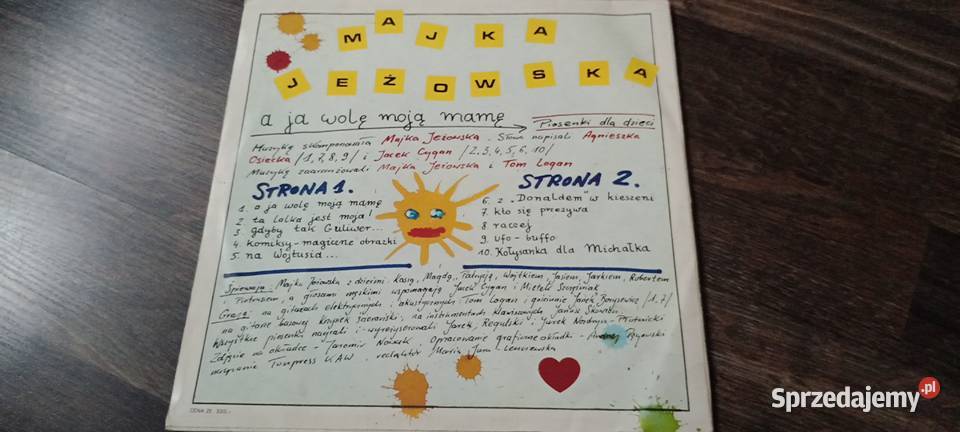 MAJKA
JEŻOWSKA
a ja wolę moją mamę
Piosenki dla dzieci
Muzykę skomponowała Majka Jeżowska. Słowa napisali Agnieszka
Osiecka /1,7,8,9/ i Jacek Cygan /2,3,4,5,6,10/
Muzykę zaaranżowali Majka Jeżowska i Tom Logan
STRONA 1.
1. a ja wolę moją mamę
2 ta lalka jest moja!
3 gdyby tak Guliwer...
4. komiksy-magiczne obrazki
5. na Wojtusia...
STRONA 2.
6. z „Donaldem" w kieszeni
7. kto się przezywa
8 raczej
9. ufo-buffo
10. Kołysanka dla Michałka
Śpiewają: Majka Jeżowska z dziećmi: Kasią, Magdą, Patrycją, Wojtkiem, Jasiem, Jarkiem, Robertem
i Piotrusiem, a głosami męskimi wspomagają Jacek Cygan i Mietek
Grają: na gitarach elektrycznych i akustycznych Tom Logan i gościnnie Jacek /1,7/
na gitarze basowej Krzysztof na instrumentach klawiszowych Janusz Skowron
Wszystkie piosenki nagrali i wyreżyserowali Jarek Regulski i Jarek
Zdjęcie na okładce - Jaromir Opracowanie graficzne okładki - Andrzej
nagranie Tonpress KAW. redaktor Maria
CENA ZŁ.
Sprzedajemy.pl